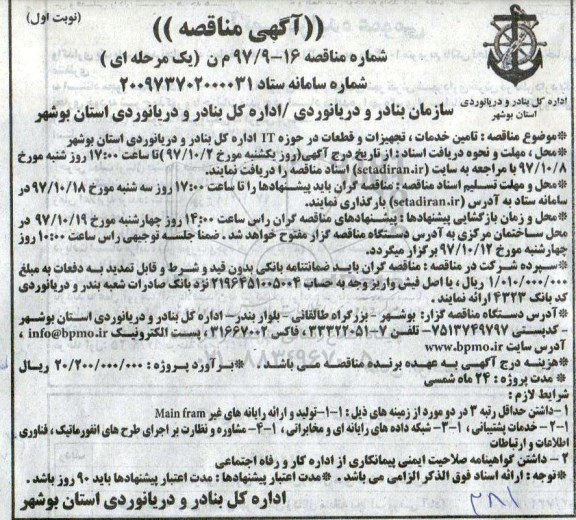 (نوبت اول)
((آگهی مناقصه ))
شماره مناقصه ۱۶-۹۷/۹ م ن (یک مرحله ای )
شماره سامانه ستاد ۲۰۰۹۷۳۷۰۲۰۰۰۰۳۱
سازمان بنادر و دریانوردی /اداره کل بنادر و دریانوردی استان بوشهر
اداره کل بنادر و دریانوردی
استان بوشهر
*موضوع مناقصه : تامین خدمات ، تجهیزات و قطعات در حوزه IT اداره کل بنادر و دریانوردی استان بوشهر
*محل ، مهلت و نحوه دریافت اسناد: از تاریخ درج آگهی(روز یکشنبه مورخ ۹۷/۱۰/۲ )تا ساعت ۱۷:۰۰ روز شنبه مورخ
۹۷/۱۰/۸ با مراجعه به سایت (setadiran.ir) اسناد مناقصه را دریافت نمایند.
*محل و مهلت تسلیم اسناد مناقصه : مناقصه گران باید پیشنهادها را تا ساعت ۱۷:۰۰ روز سه شنبه مورخ ۹۷/۱۰/۱۸ در
سامانه ستاد به آدرس (setadiran.ir) بارگذاری نمایند.
*محل و زمان بازگشایی پیشنهادها : پیشنهادهای مناقصه گران راس ساعت ۱۴:۰۰ روز چهارشنبه مورخ ۹۷/۱۰/۱۹ در
محل ساختمان مرکزی به آدرس دستگاه مناقصه گزار مفتوح خواهد شد . ضمنا جلسه توجیهی راس ساعت ۱۰:۰۰ روز
چهارشنبه مورخ ۹۷/۱۰/۱۲ برگزار میگردد.
*سپرده شرکت در مناقصه : مناقصه گران باید ضمانتنامه بانکی بدون قید و شرط و قابل تمدید به دفعات به مبلغ
۱/۰۱۰/۰۰۰/۰۰۰ ریال ، یا اصل فیش واریز وجه به حساب ۲۱۹۶۴۵۱۰۰۵۰۰۴ نزد بانک صادرات شعبه بندر و دریانوردی
کد بانک ۴۳۲۳ ارائه نمایند .
*آدرس دستگاه مناقصه گزار: بوشهر - بزرگراه طالقانی - بلوار بندر- اداره کل بنادر و دریانوردی استان بوشهر
- کدپستی ۷۵۱۳۷۴۹۷۹۷ - تلفن ۷-۳۳۳۲۲۰۵۱ ، فاکس ۳۱۶۶۷۰۰۲ ، پست الکترونیک info@bpmo.ir ،
آدرس سایت www.bpmo.ir
*هزینه درج آگهی به عهده برنده مناقصه می باشد . *برآورد پروژه : ۲۰/۲۰۰/۰۰۰/۰۰۰ ریال
* مدت پروژه : ۲۴ ماه شمسی
شرایط لازم :
۱-داشتن حداقل رتبه ۳ در دو مورد از زمینه های ذیل : ۱-۱-تولید و ارائه رایانه های غیر Main fram
۲-۱- خدمات پشتیبانی ، ۳-۱- شبکه داده های رایانه ای و مخابراتی ، ۴-۱- مشاوره و نظارت بر اجرای طرح های انفورماتیک ، فناوری
اطلاعات و ارتباطات
۲ - داشتن گواهینامه صلاحیت ایمنی پیمانکاری از اداره کار و رفاه اجتماعی
*توجه : ارائه اسناد فوق الذکر الزامی می باشد . *مدت اعتبار پیشنهادها : مدت اعتبار پیشنهادها باید ۹۰ روز باشد .
اداره کل بنادر و دریانوردی استان بوشهر
۲۸۱